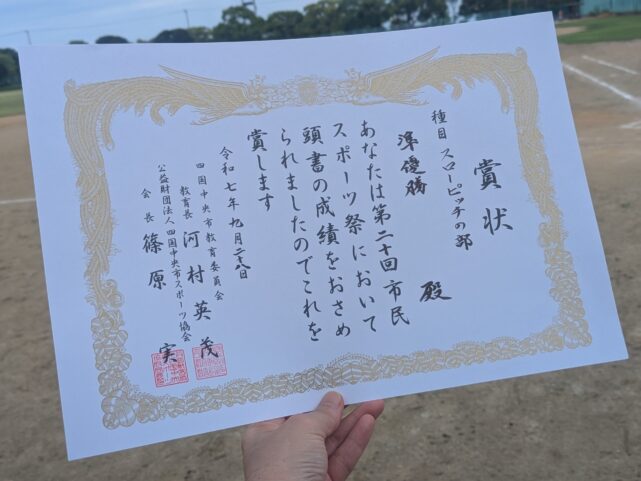 賞状
種目 スローピッチの部
準優勝
殿
あなたは第二十回市民
スポーツ祭において
頭書の成績をおさめ
られましたのでこれを
賞します
令和七年九月二十八日
四国中央市教育委員会
教育長 河村英茂
公益財団法人四国中央市スポーツ協会
会長 篠原実